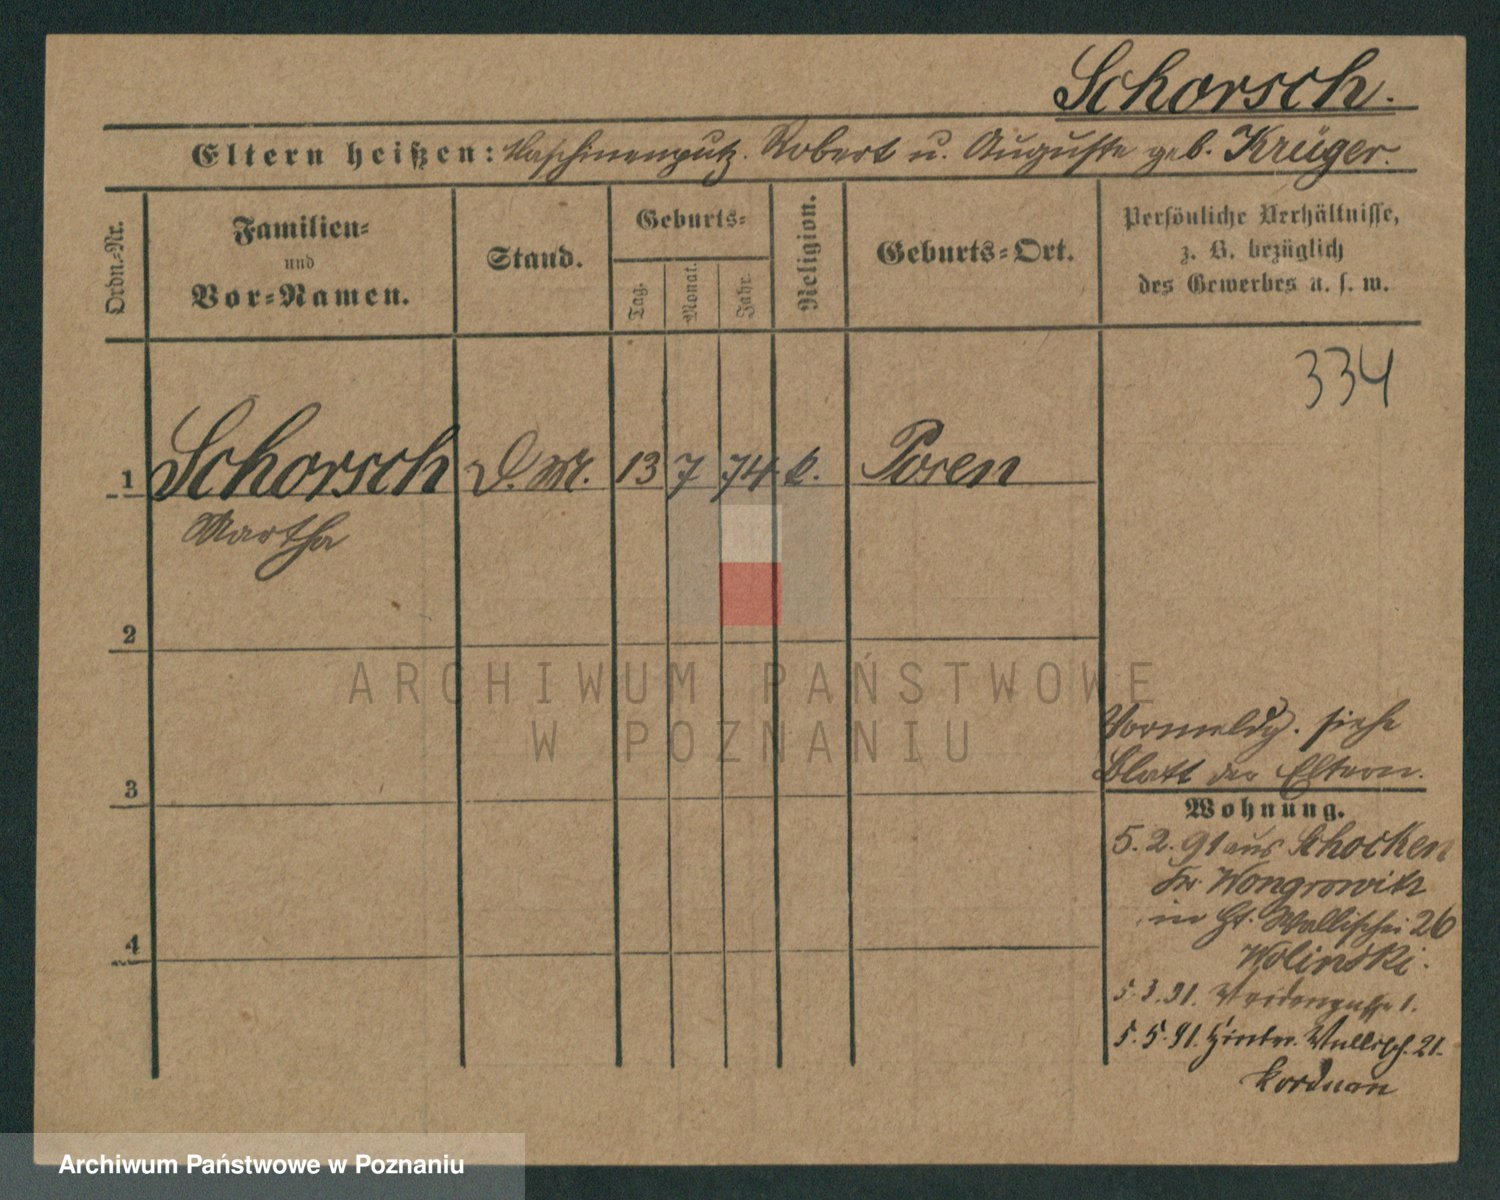 Schorsch.
Eltern heißen: Maschinenputz. Robert u. Auguste geb. Krüger.
Ordn.-Nr.
Familien-
und
Vor-Namen.
Stand.
Geburts-
Tag.
Monat.
Jahr.
Religion.
Geburts-Ort.
Persönliche Verhältnisse,
z. B. bezüglich
des Gewerbes u. s. w.
334
1 Schorsch D. M. 13 7 74 k. Posen
Martha
2
ARCHIWUM PAŃSTWOWE
W POZNANIU
Vormeldg. siehe
Blatt der Eltern.
3
Wohnung.
5. 2. 91 aus Schocken
Kr. Wongrowitz
in Ht. Wallischei 26
Wolinski.
5. 3. 91. 1.
4
5. 5. 91. Hinter. Wallisch. 21.
Archiwum Państwowe w Poznaniu